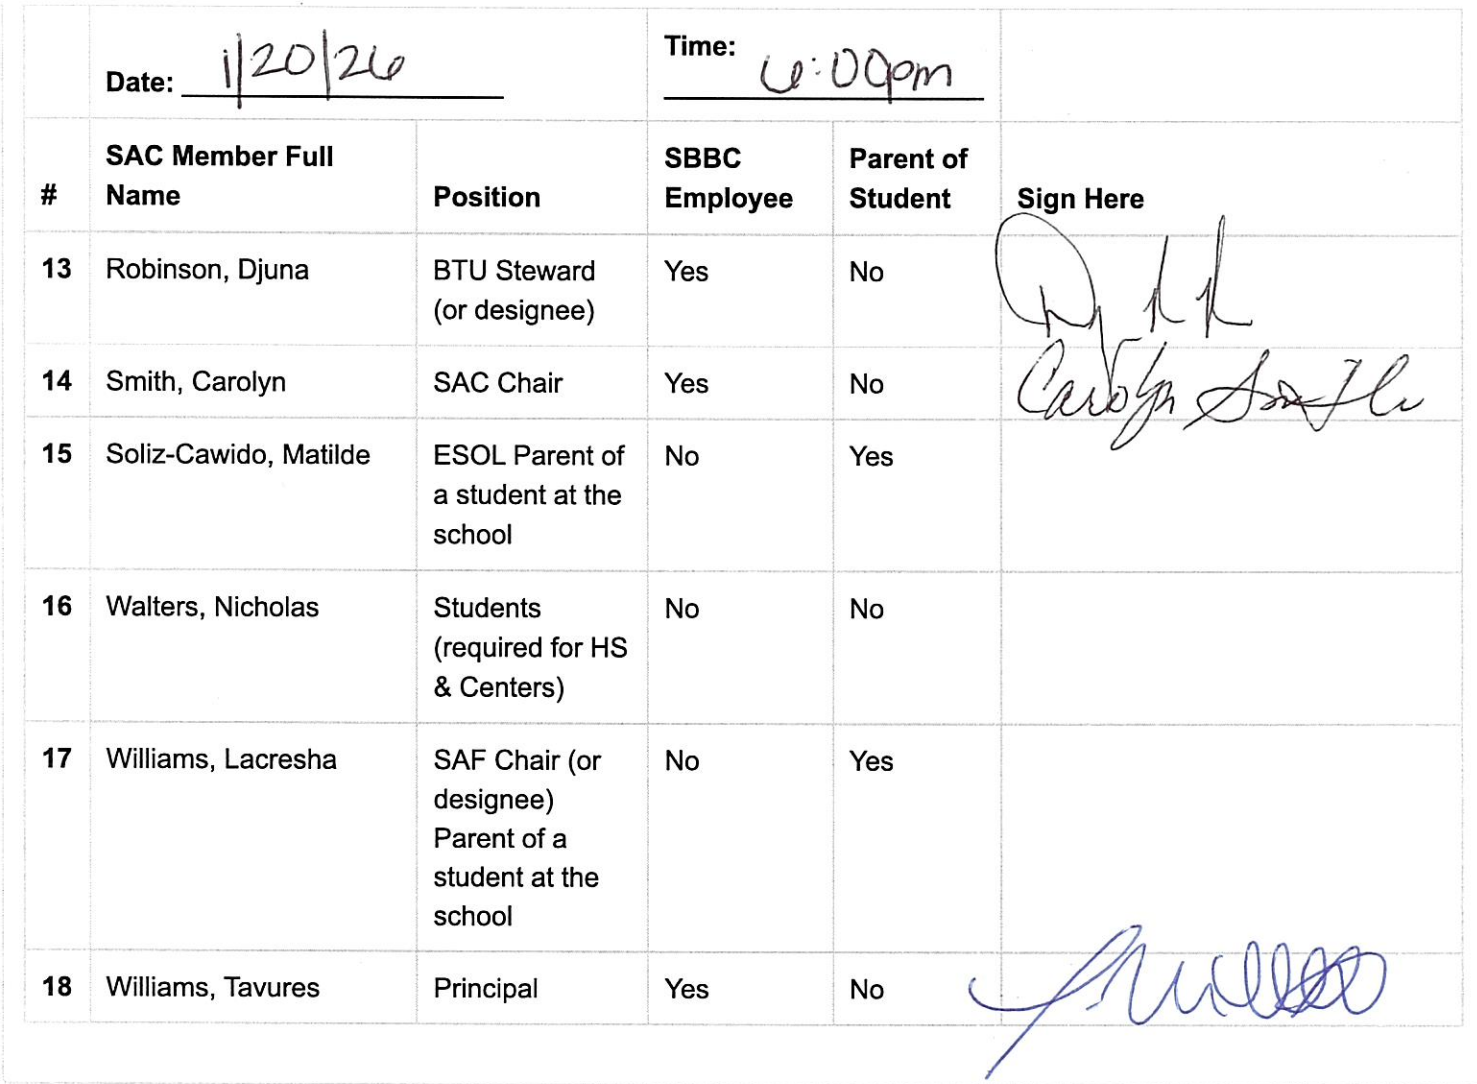 Date: 1/20/26 Time: 6:00pm
# SAC Member Full Name Position SBBC Employee Parent of Student Sign Here
13 Robinson, Djuna BTU Steward Yes No
(or designee)
14 Smith, Carolyn SAC Chair Yes No Carolyn Smith
15 Soliz-Cawido, Matilde ESOL Parent of No Yes
a student at the
school
16 Walters, Nicholas Students No No
(required for HS
& Centers)
17 Williams, Lacresha SAF Chair (or No Yes
designee)
Parent of a
student at the
school
18 Williams, Tavures Principal Yes No